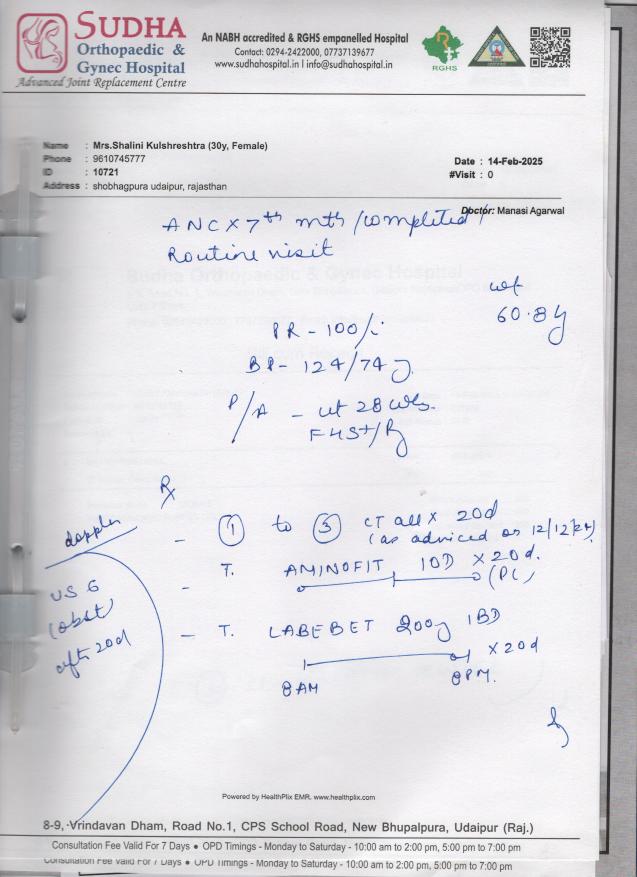 SUDHA
Orthopaedic &
Gynec Hospital
Advanced Joint Replacement Centre
An NABH accredited & RGHS empanelled Hospital
Contact: 0294-2422000, 07737139677
www.sudhahospital.in I info@sudhahospital.in
RGHS
Name : Mrs.Shalini Kulshreshtra (30y, Female)
Phone : 9610745777
ID : 10721
Address : shobhagpura udaipur, rajasthan
Date : 14-Feb-2025
#Visit : 0
Doctor: Manasi Agarwal
ANC X 7th mth / completed /
Routine visit
wt
60.8
PR - 100/
BP - 124/74
P/A - ut 28 wks.
FHS+/R
Rx
doppler
USG
(obst)
aft 20d
- 1 to 5 CT all X 20d
(as adviced on 12/12/24)
- T. AMINOFIT 1OD X 20d.
(PC)
- T. LABEBET 200 1BD
X 20d
8AM 8PM.
Powered by HealthPlix EMR. www.healthplix.com
8-9, Vrindavan Dham, Road No.1, CPS School Road, New Bhupalpura, Udaipur (Raj.)
Consultation Fee Valid For 7 Days ● OPD Timings - Monday to Saturday - 10:00 am to 2:00 pm, 5:00 pm to 7:00 pm
Consultation Fee Valid For 7 Days ● OPD Timings - Monday to Saturday - 10:00 am to 2:00 pm, 5:00 pm to 7:00 pm